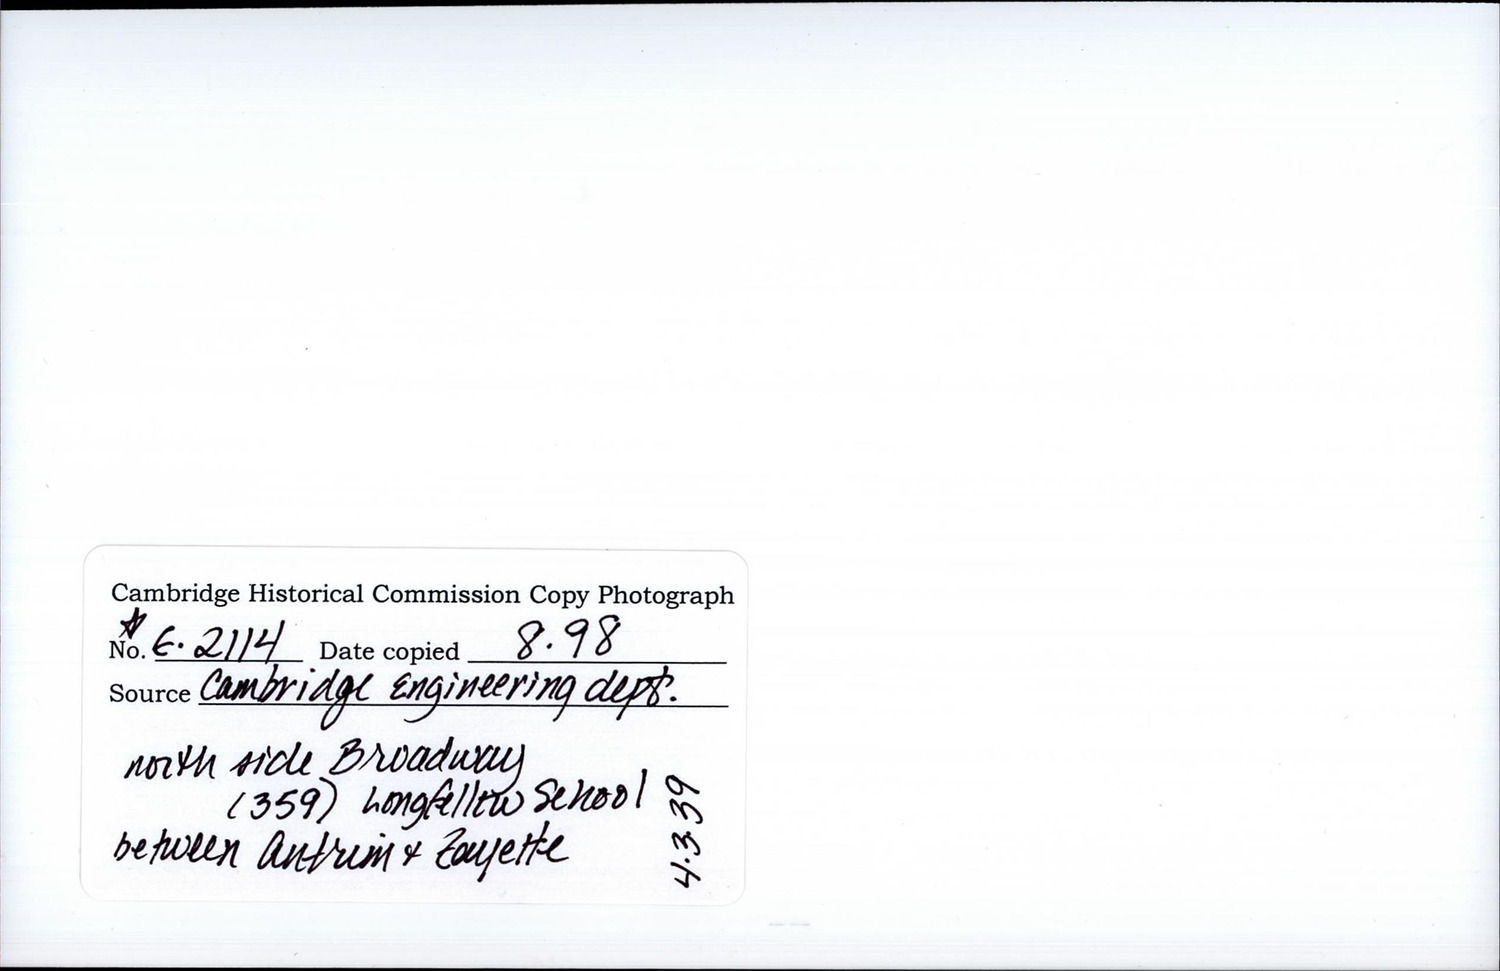 Cambridge Historical Commission Copy Photograph
No. E. 2114 Date copied 8.98
Source Cambridge Engineering dept.
north side Broadway
(359) Longfellow School
between Antrim & Fayette
4.3.39